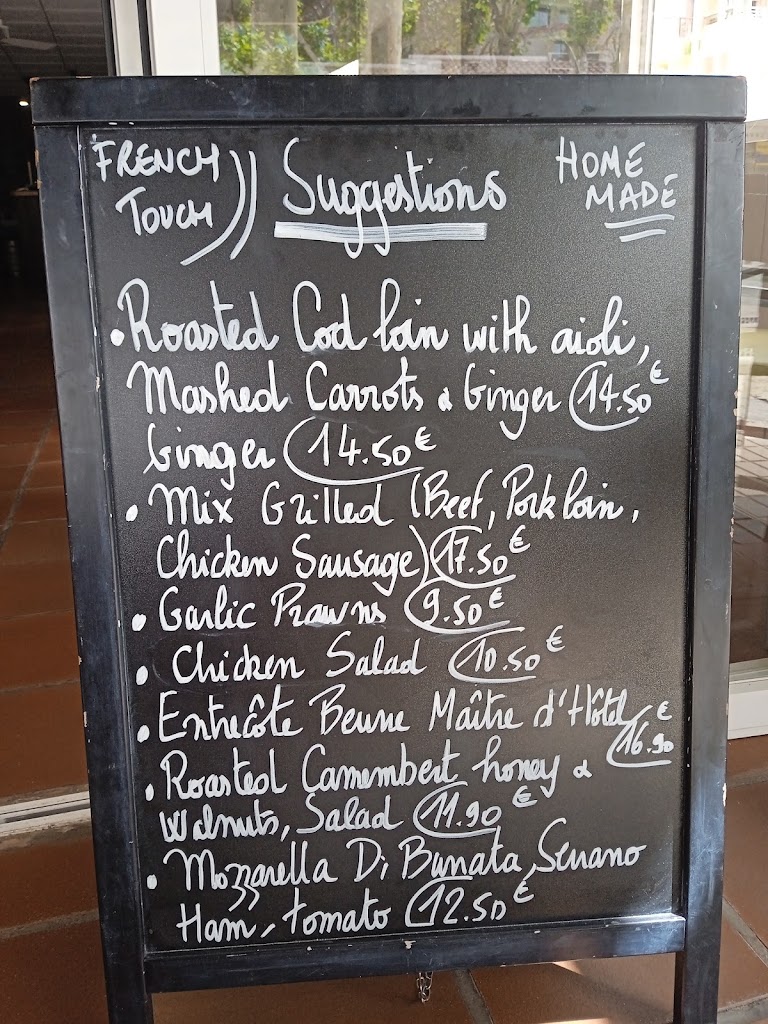 FRENCH TOUCH )) Suggestions HOME MADE
• Roasted Cod loin with aioli,
Mashed Carrots & Ginger 14.50€
Ginger 14.50€
• Mix Grilled (Beef, Pork loin,
Chicken Sausage) 17.50€
• Garlic Prawns 9.50€
• Chicken Salad 10.50€
• Entrecôte Beurre Maître d'Hôtel 16.90€
• Roasted Camembert honey &
Walnuts, Salad 11.90€
• Mozzarella Di Burrata, Serrano
Ham, tomato 12.50€